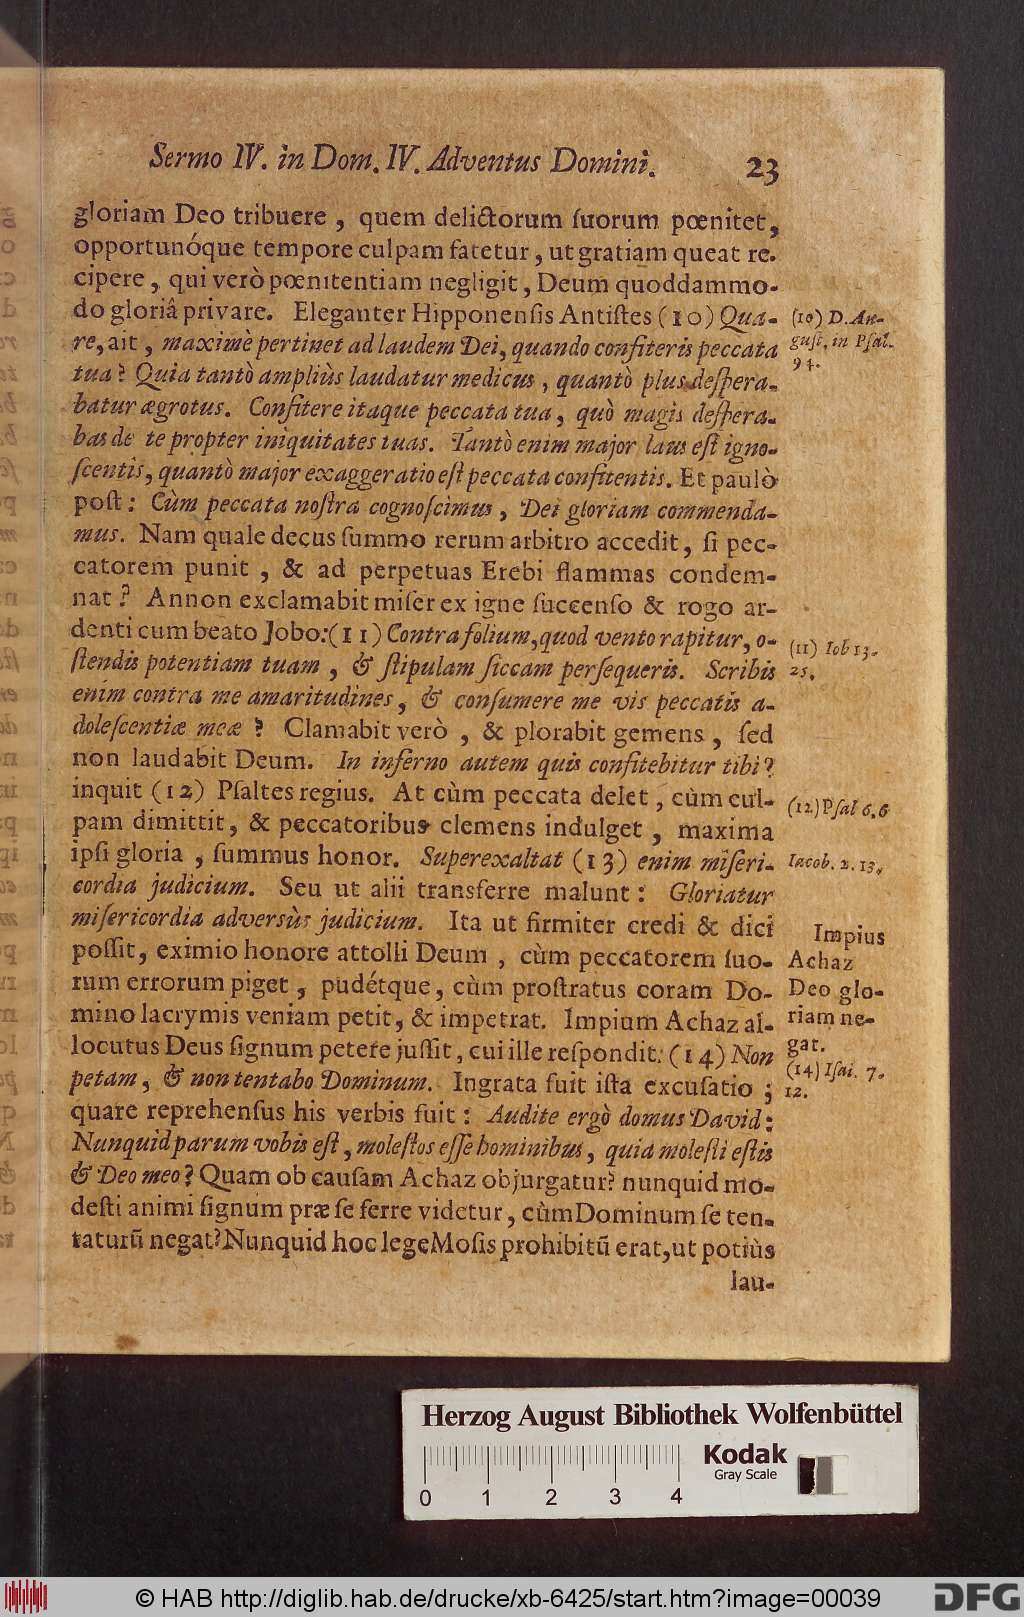 Sermo IV. in Dom. IV. Adventus Domini. 23
gloriam Deo tribuere, quem delictorum ſuorum pœnitet,
opportunóque tempore culpam fatetur, ut gratiam queat re-
cipere, qui verò pœnitentiam negligit, Deum quoddammo-
do gloriâ privare. Eleganter Hipponenſis Antiſtes (10) Qua-
re, ait, maximè pertinet ad laudem Dei, quando confiteris peccata
tua? Quia tantò ampliùs laudatur medicus, quantò plus deſpera-
batur ægrotus. Confitere itaque peccata tua, quò magis deſpera-
bas de te propter iniquitates tuas. Tantò enim major laus eſt igno-
ſcentis, quantò major exaggeratio eſt peccata confitentis. Et paulò
poſt: Cùm peccata noſtra cognoſcimus, Dei gloriam commenda-
mus. Nam quale decus ſummo rerum arbitro accedit, ſi pec-
catorem punit, & ad perpetuas Erebi flammas condem-
nat? Annon exclamabit miſer ex igne ſuccenſo & rogo ar-
denti cum beato Jobo: (11) Contra folium, quod vento rapitur, o-
ſtendis potentiam tuam, & ſtipulam ſiccam perſequeris. Scribis
enim contra me amaritudines, & conſumere me vis peccatis a-
doleſcentiæ meæ? Clamabit verò, & plorabit gemens, ſed
non laudabit Deum. In inferno autem quis confitebitur tibi?
inquit (12) Pſaltes regius. At cùm peccata delet, cùm cul-
pam dimittit, & peccatoribus clemens indulget, maxima
ipſi gloria, ſummus honor. Superexaltat (13) enim miſeri-
cordia judicium. Seu ut alii transferre malunt: Gloriatur
miſericordia adversùs judicium. Ita ut firmiter credi & dici
poſſit, eximio honore attolli Deum, cùm peccatorem ſuo-
rum errorum piget, pudétque, cùm proſtratus coram Do-
mino lacrymis veniam petit, & impetrat. Impium Achaz al-
locutus Deus ſignum petere juſſit, cui ille reſpondit: (14) Non
petam, & non tentabo Dominum. Ingrata fuit iſta excuſatio;
quare reprehenſus his verbis fuit: Audite ergò domus David:
Nunquid parum vobis eſt, moleſtos eſſe hominibus, quia moleſti eſtis
& Deo meo? Quam ob cauſam Achaz objurgatur? nunquid mo-
deſti animi ſignum præ ſe ferre videtur, cùm Dominum ſe ten-
taturū negat? Nunquid hoc lege Moſis prohibitū erat, ut potiùs
lau-
(10) D. Au-
guſt. in Pſal.
94.
(11) Iob 13.
25.
(12) Pſal 6. 6
Iacob. 2. 13.
Impius
Achaz
Deo glo-
riam ne-
gat.
(14) Iſai. 7.
12.
Herzog August Bibliothek Wolfenbüttel
Kodak
Gray Scale
0 1 2 3 4
© HAB http://diglib.hab.de/drucke/xb-6425/start.htm?image=00039
DFG